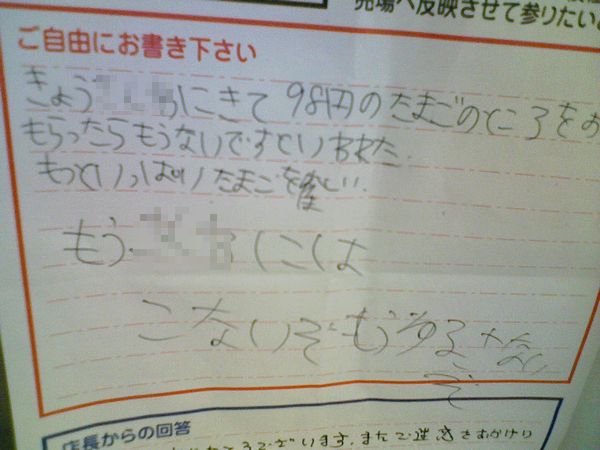 売場へ反映させて参りたいと
ご自由にお書き下さい
きょう にきて 98円のたまごのところをお
もらったらもうないですといわれた
もっといっぱいたまごを
もう にくは
こないぞもう
ぞ
店長からの回答
ございます。またご迷惑をおかけし